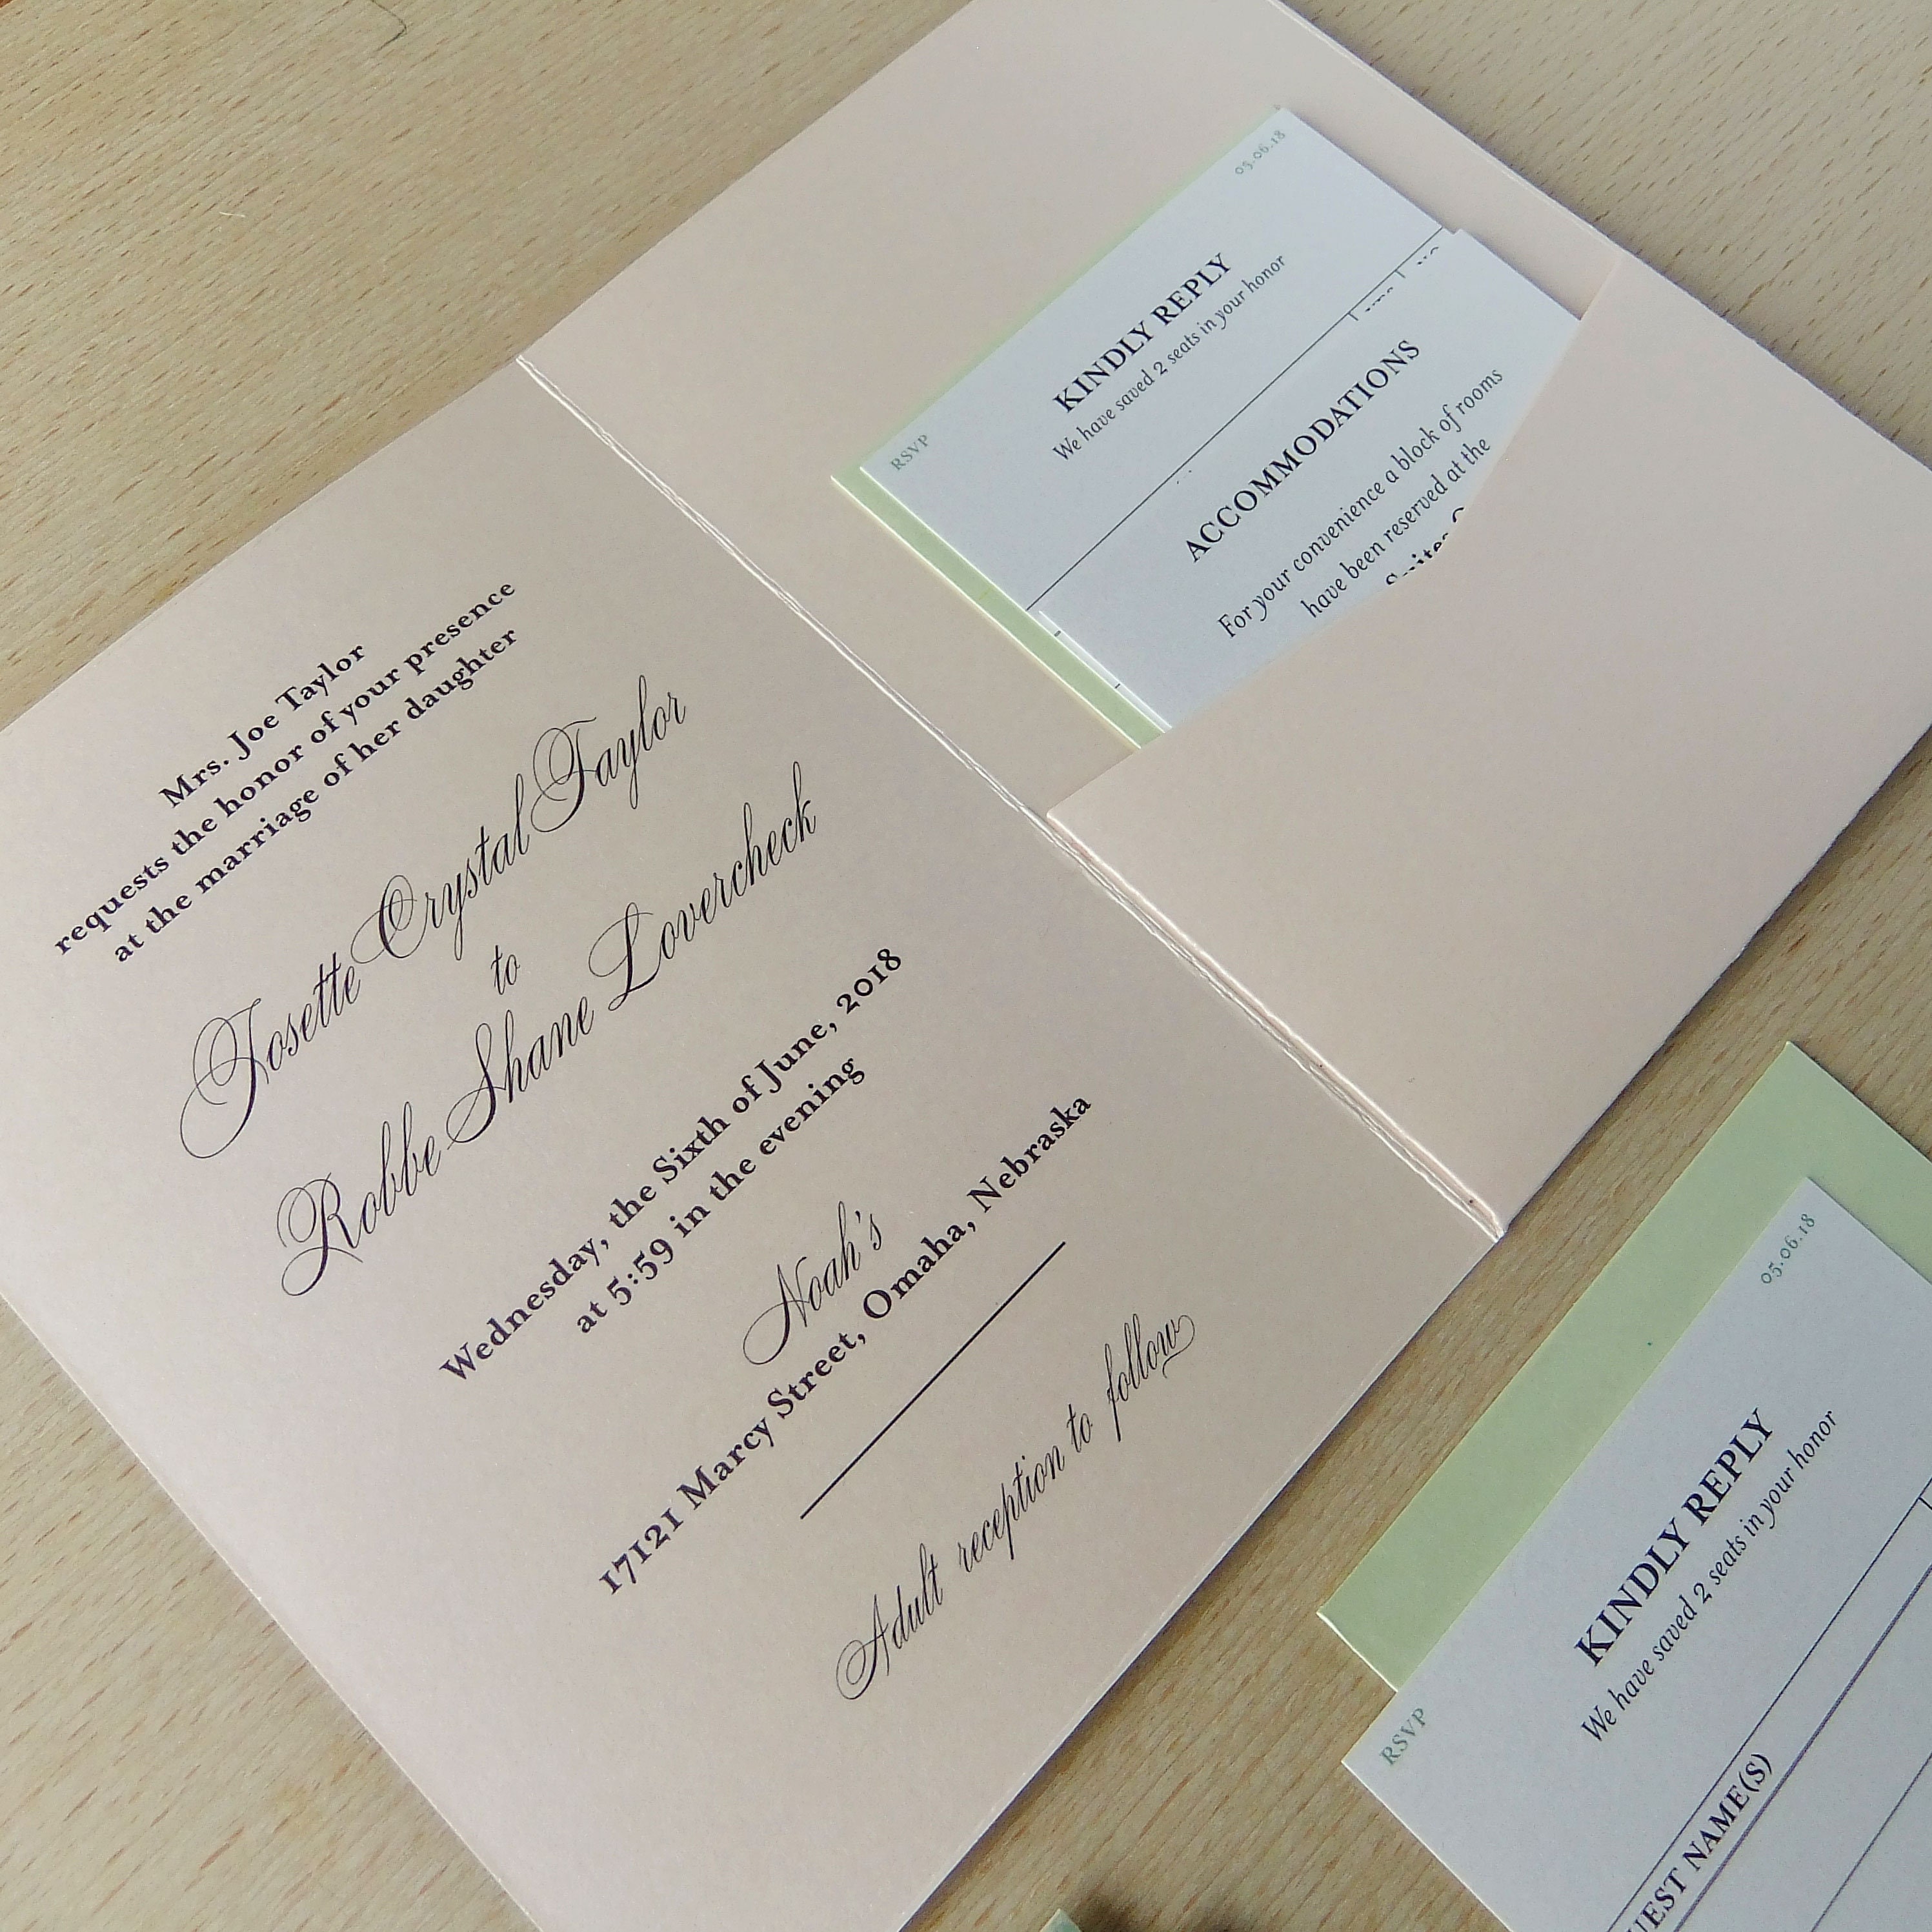 Mrs. Joe Taylor
requests the honor of your presence
at the marriage of her daughter
Josette Crystal Taylor
to
Robbe Shane Lovercheck
Wednesday, the Sixth of June, 2018
at 5:59 in the evening
Noah's
17121 Marcy Street, Omaha, Nebraska
Adult reception to follow
RSVP
05.06.18
KINDLY REPLY
We have saved 2 seats in your honor
ACCOMMODATIONS
For your convenience a block of rooms
have been reserved at the
RSVP
05.06.18
KINDLY REPLY
We have saved 2 seats in your honor
NAME(S)